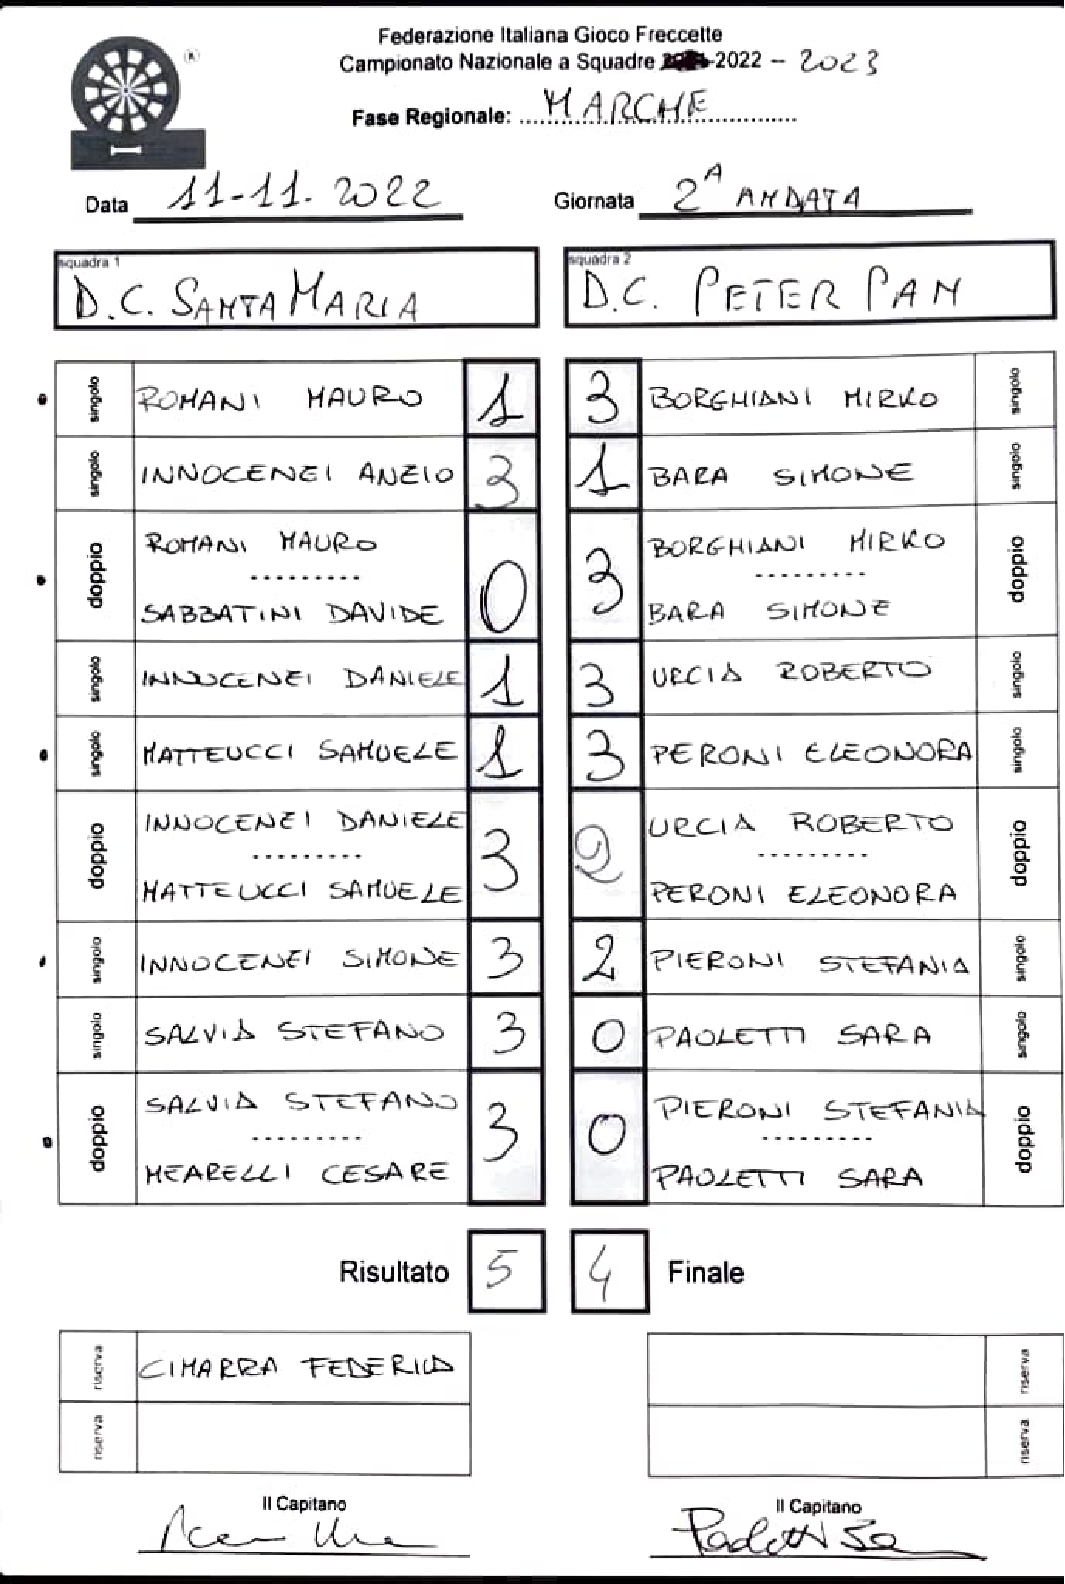 Federazione Italiana Gioco Freccette
®
Campionato Nazionale a Squadre -2022 - 2023
Fase Regionale: MARCHE
Data 11-11.2022 Giornata 2ᴬ ANDATA
squadra 1 squadra 2
D.C. SANTA MARIA D.C. PETER PAN
singolo ROMANI MAURO 1 3 BORGHIANI MIRKO singolo
singolo INNOCENZI ANZIO 3 1 BARA SIMONE singolo
ROMANI MAURO BORGHIANI MIRKO
doppio 0 3 doppio
SABBATINI DAVIDE BARA SIMONE
singolo INNOCENZI DANIELE 1 3 URCIA ROBERTO singolo
singolo MATTEUCCI SAMUELE 1 3 PERONI ELEONORA singolo
INNOCENZI DANIELE URCIA ROBERTO
doppio 3 2 doppio
MATTEUCCI SAMUELE PERONI ELEONORA
singolo INNOCENZI SIMONE 3 2 PIERONI STEFANIA singolo
singolo SALVIA STEFANO 3 0 PAOLETTI SARA singolo
SALVIA STEFANO PIERONI STEFANIA
doppio 3 0 doppio
MEARELLI CESARE PAOLETTI SARA
Risultato 5 4 Finale
riserva CIMARRA FEDERICA riserva
riserva riserva
Il Capitano Il Capitano